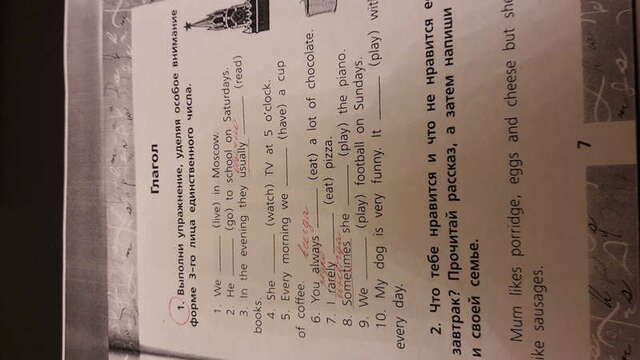 Глагол
1. Выполни упражнение, уделяя особое внимание
форме 3-го лица единственного числа.
1. We ______ (live) in Moscow.
2 He ______ (go) to school on Saturdays.
обычно
3 In the evening they usually ______ (read)
books.
4. She ______ (watch) TV at 5 o'clock.
5. Every morning we ______ (have) a cup
of coffee.
всегда
6. You always ______ (eat) a lot of chocolate.
редко
7. I rarely ______ (eat) pizza.
иногда
8. Sometimes she ______ (play) the piano.
9. We ______ (play) football on Sundays.
10. My dog is very funny. It ______ (play) wit
every day.
2. Что тебе нравится и что не нравится е
завтрак? Прочитай рассказ, а затем напиши
и своей семье.
Mum likes porridge, eggs and cheese but she
ike sausages.
7